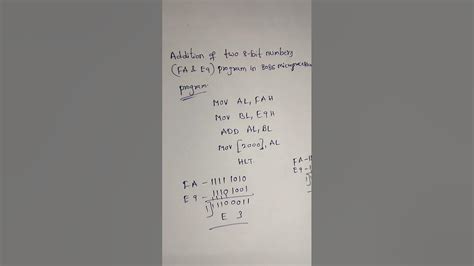 Addition of two 8-bit numbers
(FA & E9) program in 8086 microprocessor
program
MOV AL, FAH
MOV BL, E9H
ADD AL, BL
MOV [2000], AL
HLT
FA - 1111 1010
E9 - 1110 1001
1 1110 0011
E 3
FA-11
E9-1
1